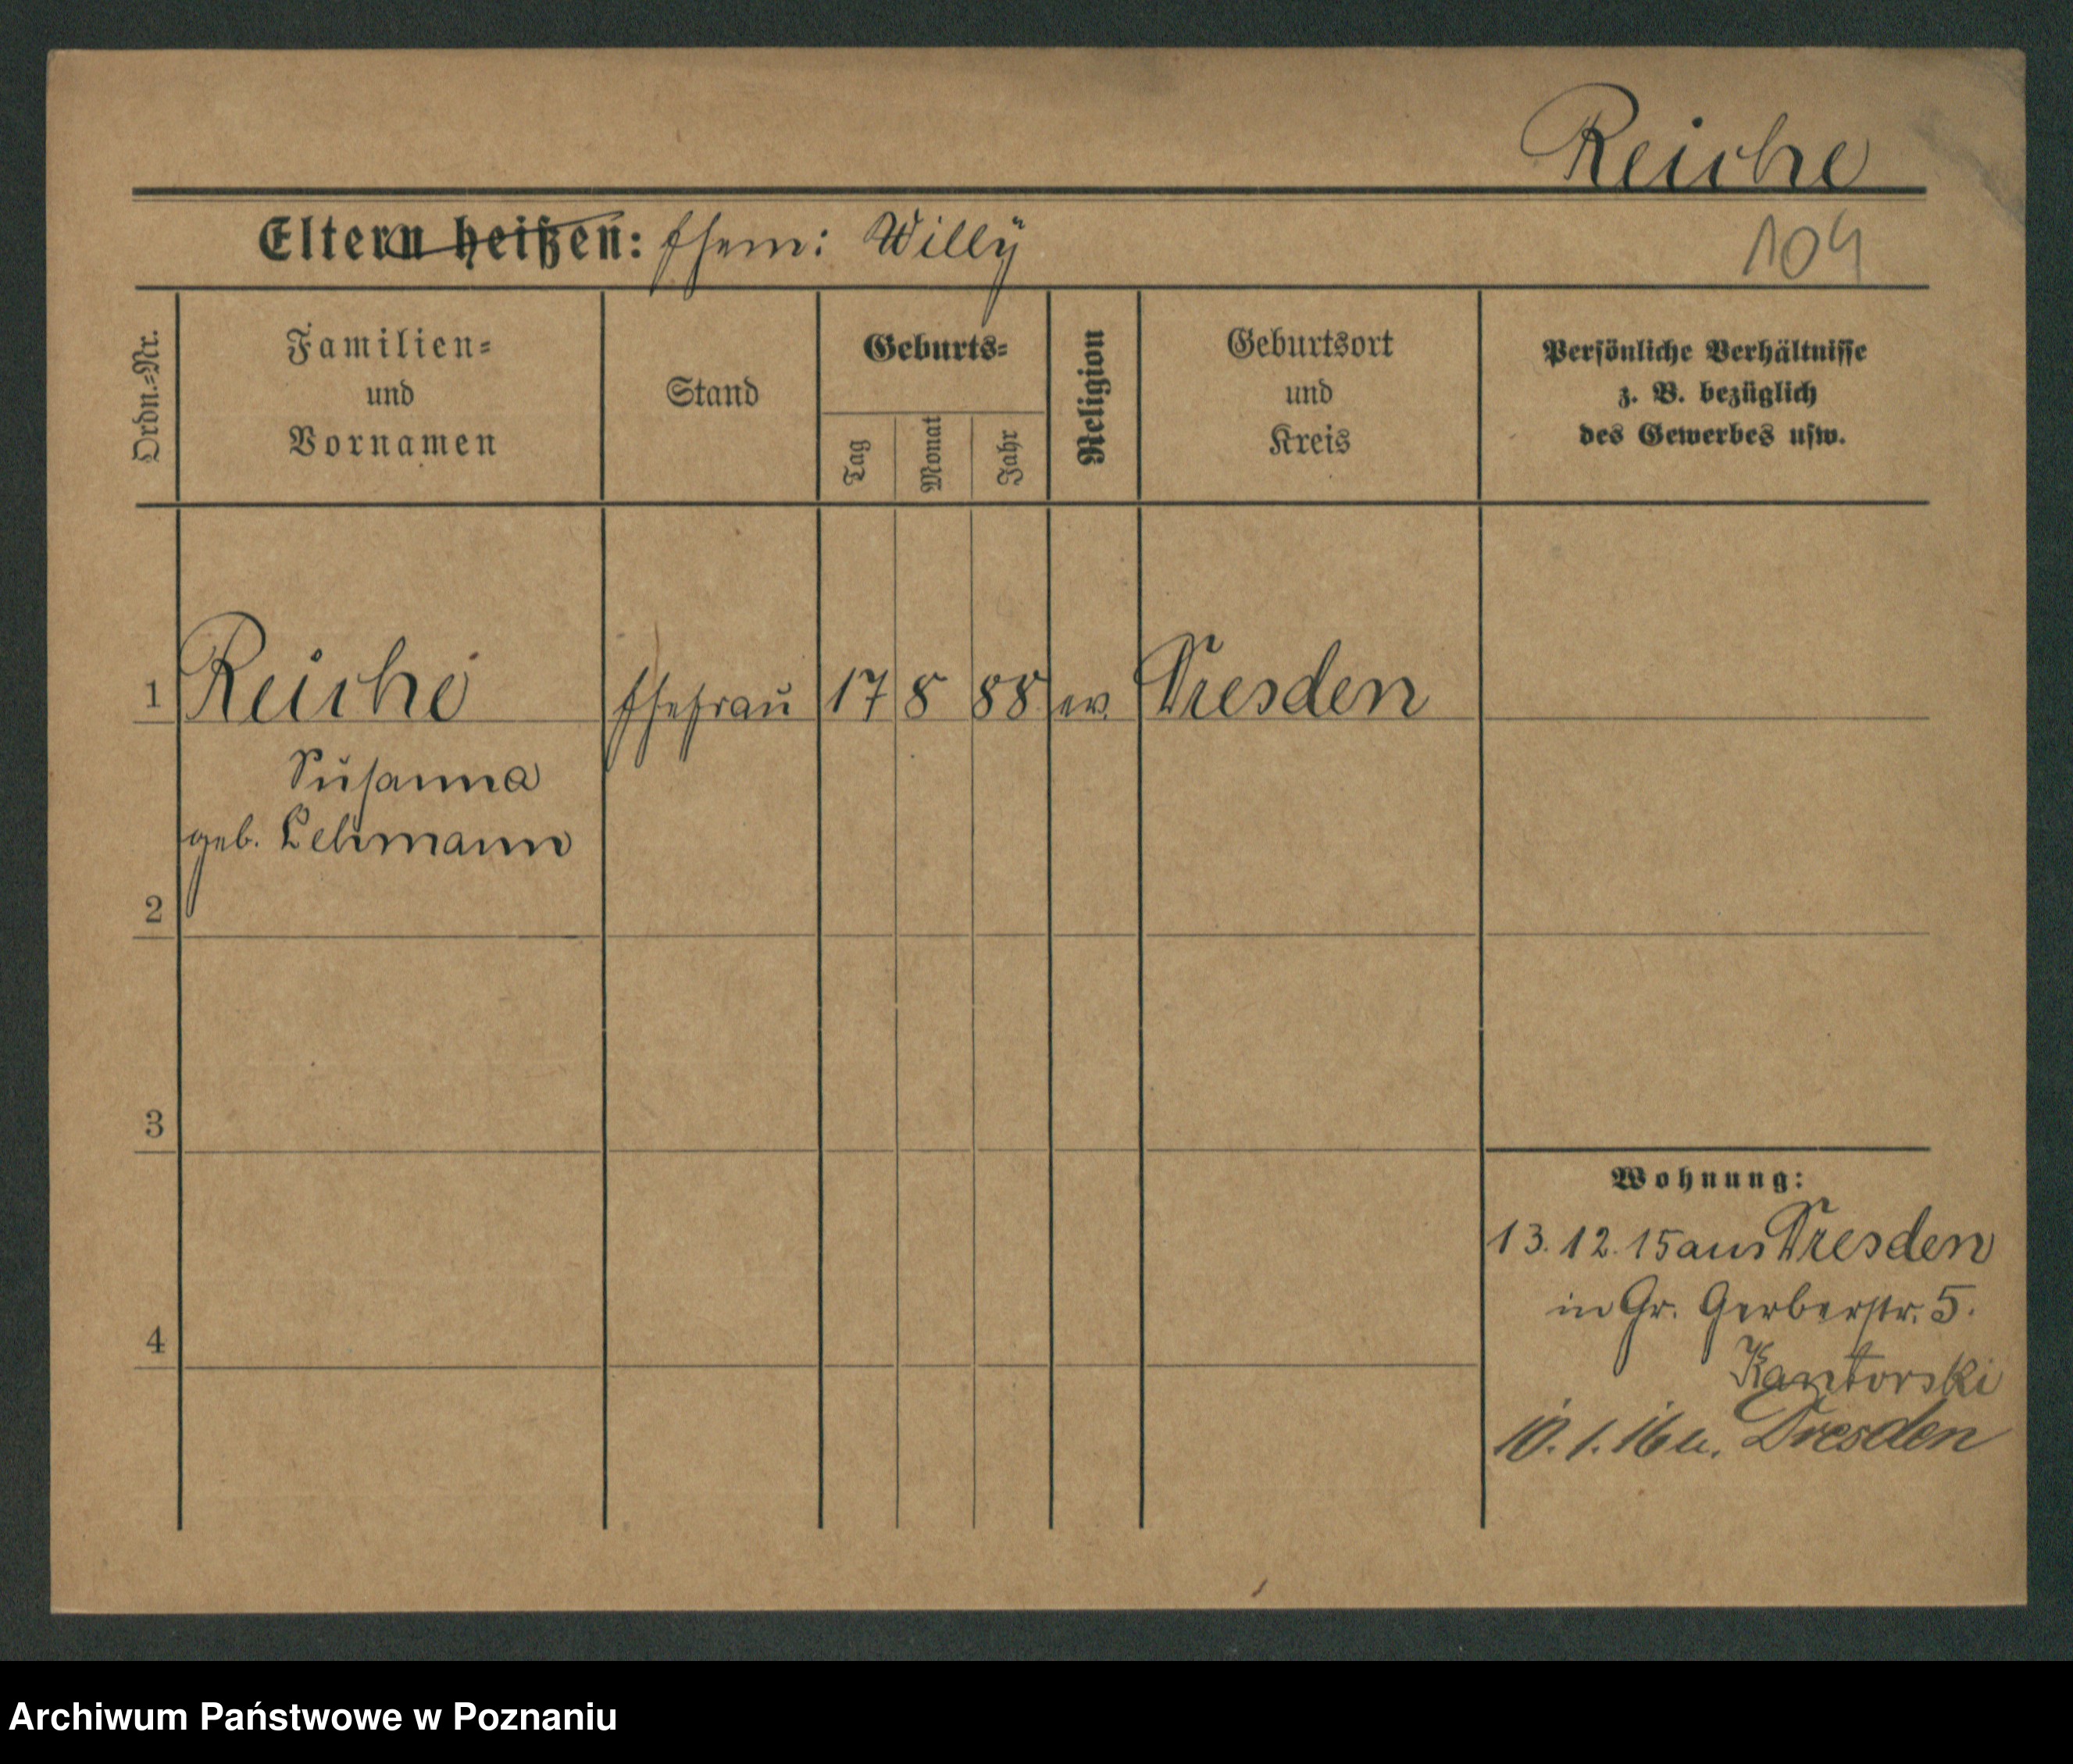 Reiche
Eltern heißen: Ehem: Willy
104
Ordn.=Nr.
Familien=
und
Vornamen
Stand
Geburts=
Tag
Monat
Jahr
Religion
Geburtsort
und
Kreis
Persönliche Verhältnisse
z. B. bezüglich
des Gewerbes usw.
1 Reiche Ehefrau 17 8 88 ev. Dresden
Susanna
geb. Lehmann
2
3
4
Wohnung:
13.12.15 aus Dresden
in Gr. Gerberstr. 5.
Kantorski
10.1.16 u. Dresden
Archiwum Państwowe w Poznaniu